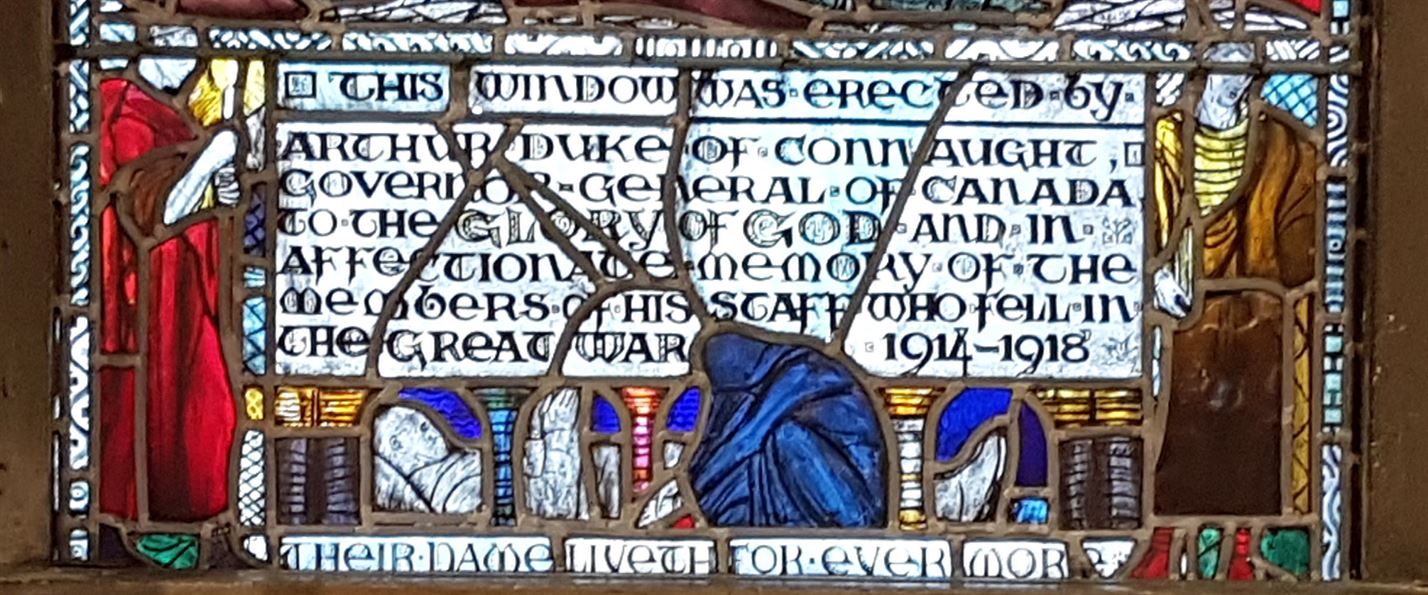 THIS WINDOW WAS·ERECTED·BY·
ARTHUR·DUKE·OF·CONNAUGHT,
GOVERNOR-GENERAL·OF·CANADA
TO·THE GLORY OF GOD·AND·IN·
AFFECTIONATE·MEMORY·OF·THE
MEMBERS·OF·HIS STAFF WHO·FELL·IN·
THE GREAT WAR ·1914-1918
THEIR·NAME LIVETH FOR·EVER MOR